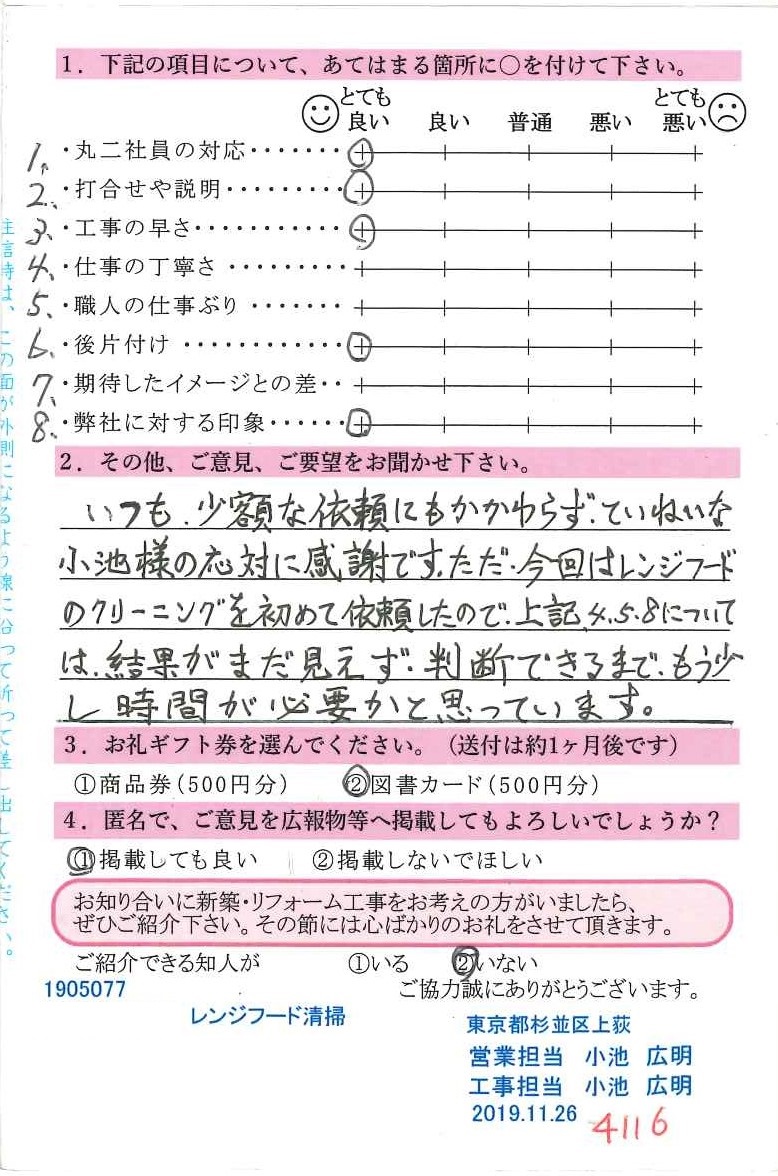 1. 下記の項目について、あてはまる箇所に○を付けて下さい。
とても良い 良い 普通 悪い とても悪い
1. ・丸二社員の対応・・・・・・・
2. ・打合せや説明・・・・・・・・・
3. ・工事の早さ・・・・・・・・・・・
4. ・仕事の丁寧さ・・・・・・・・・
5. ・職人の仕事ぶり・・・・・・・
6. ・後片付け・・・・・・・・・・・・
7. ・期待したイメージとの差・・
8. ・弊社に対する印象・・・・・・
2. その他、ご意見、ご要望をお聞かせ下さい。
いつも、少額な依頼にもかかわらず、ていねいな
小池様の応対に感謝です。ただ、今回はレンジフード
のクリーニングを初めて依頼したので、上記4.5.8について
は、結果がまだ見えず、判断できるまで、もう少
し時間が必要かと思っています。
3. お礼ギフト券を選んでください。(送付は約1ヶ月後です)
①商品券(500円分) ②図書カード(500円分)
4. 匿名で、ご意見を広報物等へ掲載してもよろしいでしょうか?
①掲載しても良い ②掲載しないでほしい
お知り合いに新築・リフォーム工事をお考えの方がいましたら、
ぜひご紹介下さい。その節には心ばかりのお礼をさせて頂きます。
ご紹介できる知人が ①いる ②いない
1905077 ご協力誠にありがとうございます。
レンジフード清掃
東京都杉並区上荻
営業担当 小池 広明
工事担当 小池 広明
2019.11.26
4116